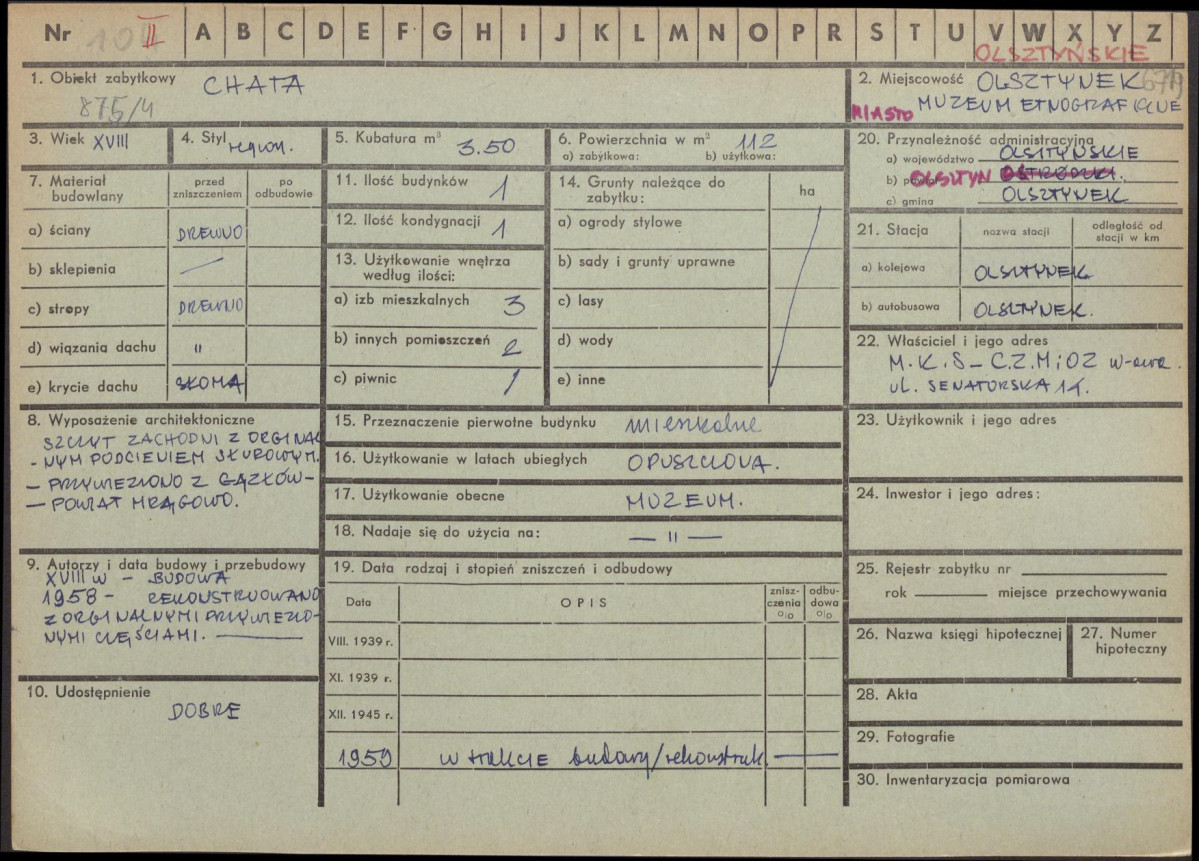 Nr II A B C D E F G H I J K L M N O P R S T U V W X Y Z
OLSZTYŃSKIE
1. Obiekt zabytkowy CHATA
875/4
2. Miejscowość OLSZTYNEK
MIASTO MUZEUM ETNOGRAFICZNE
3. Wiek XVIII
4. Styl region.
5. Kubatura m³ 3.50
6. Powierzchnia w m² 112
a) zabytkowa: b) użytkowa:
20. Przynależność administracyjna
a) województwo OLSZTYŃSKIE
b) powiat OLSZTYN OSTRÓDZKI.
c) gmina OLSZTYNEK
7. Materiał budowlany
przed zniszczeniem
po odbudowie
a) ściany DREWNO
b) sklepienia —
c) stropy DREWNO
d) wiązania dachu "
e) krycie dachu SŁOMA
11. Ilość budynków 1
12. Ilość kondygnacji 1
13. Użytkowanie wnętrza
według ilości:
a) izb mieszkalnych 3
b) innych pomieszczeń 2
c) piwnic 1
14. Grunty należące do
zabytku:
ha
a) ogrody stylowe
b) sady i grunty uprawne
c) lasy
d) wody
e) inne
21. Stacja
nazwa stacji
odległość od
stacji w km
a) kolejowa OLSZTYNEK
b) autobusowa OLSZTYNEK.
22. Właściciel i jego adres
M.K.S – C.Z.M i OZ W-awa.
ul. SENATORSKA 14.
8. Wyposażenie architektoniczne
SZCZYT ZACHODNI Z ORGINAL
- NYM PODCIENIEM SŁUPOWYM.
— PRZYWIEZIONO Z GĄZŁÓW —
— POWIAT MRĄGOWO.
15. Przeznaczenie pierwotne budynku mieszkalne
16. Użytkowanie w latach ubiegłych OPUSZCZONA.
17. Użytkowanie obecne MUZEUM.
18. Nadaje się do użycia na: — " —
23. Użytkownik i jego adres
24. Inwestor i jego adres:
9. Autorzy i data budowy i przebudowy
XVIII W – BUDOWA
1958 – REKONSTRUOWANO
Z ORGINALNYMI PRZYWIEZIO-
NYMI CZĘŚCIAMI. ———
19. Data rodzaj i stopień zniszczeń i odbudowy
Data
OPIS
znisz-
czenia
%
odbu-
dowa
%
VIII. 1939 r.
XI. 1939 r.
XII. 1945 r.
1959 w trakcie budowy/rekonstruk. —
25. Rejestr zabytku nr
rok miejsce przechowywania
26. Nazwa księgi hipotecznej
27. Numer
hipoteczny
10. Udostępnienie
DOBRE
28. Akta
29. Fotografie
30. Inwentaryzacja pomiarowa